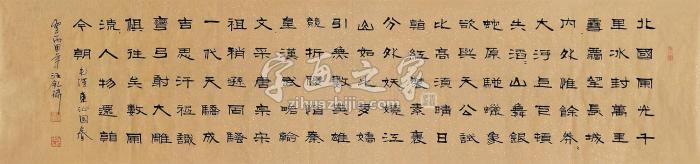 北國風光千
里冰封萬里
雪飄望長城
内外惟餘莽
大河上下頓
失滔山舞銀
蛇原馳蠟象
欲與天公試
比高須晴日
看紅裝素裹
分外妖嬈江
山如此多嬌
引無數英雄
競折腰惜秦
皇漢武略輸
文采唐宗宋
祖稍遜風騷
一代天驕成
吉思汗祗識
彎弓射大雕
俱往矣數風
流人物還看
今朝 毛澤東沁園春
雪 丙申年
字画之家
www.zihuazhijia.com